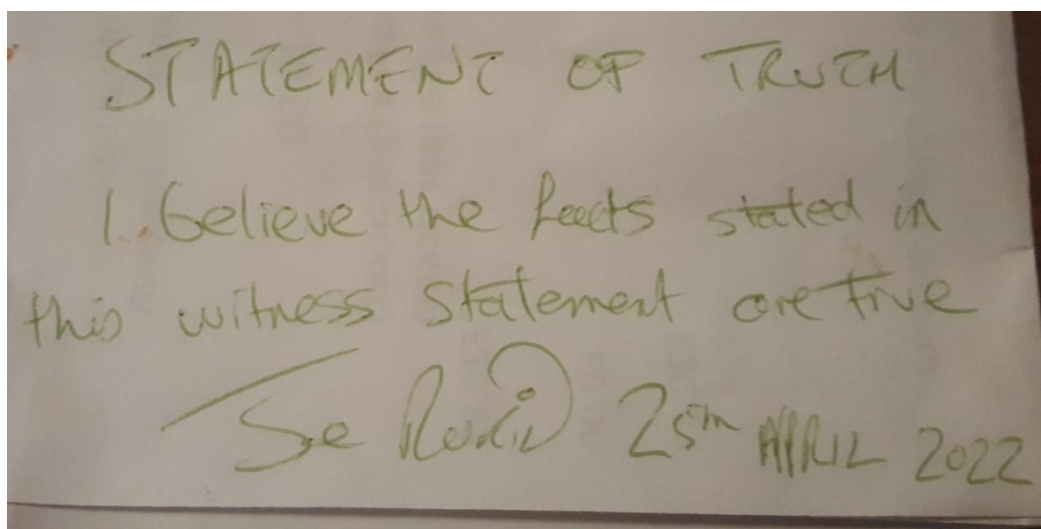 STATEMENT OF TRUTH
I believe the facts stated in
this witness statement are true
25TH APRIL 2022